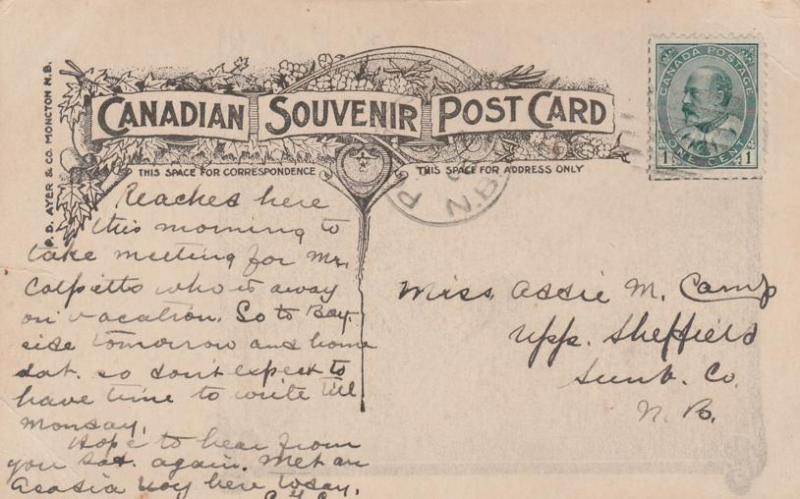 P. D. AYER & CO. MONCTON N.B.
CANADIAN SOUVENIR POST CARD
THIS SPACE FOR CORRESPONDENCE
THIS SPACE FOR ADDRESS ONLY
CANADA POSTAGE
1 ONE CENT 1
Reaches here
this morning to
take meeting for Mr.
Colpitts who is away
on vacation. Go to Bay-
side tomorrow and home
sat. so don't expect to
have time to write till
Monday.
Hope to hear from
you sat. again. Met an
Acadia boy here today.
Miss. Assie M. Camp
Upp. Sheffield
Sunb. Co.
N. B.